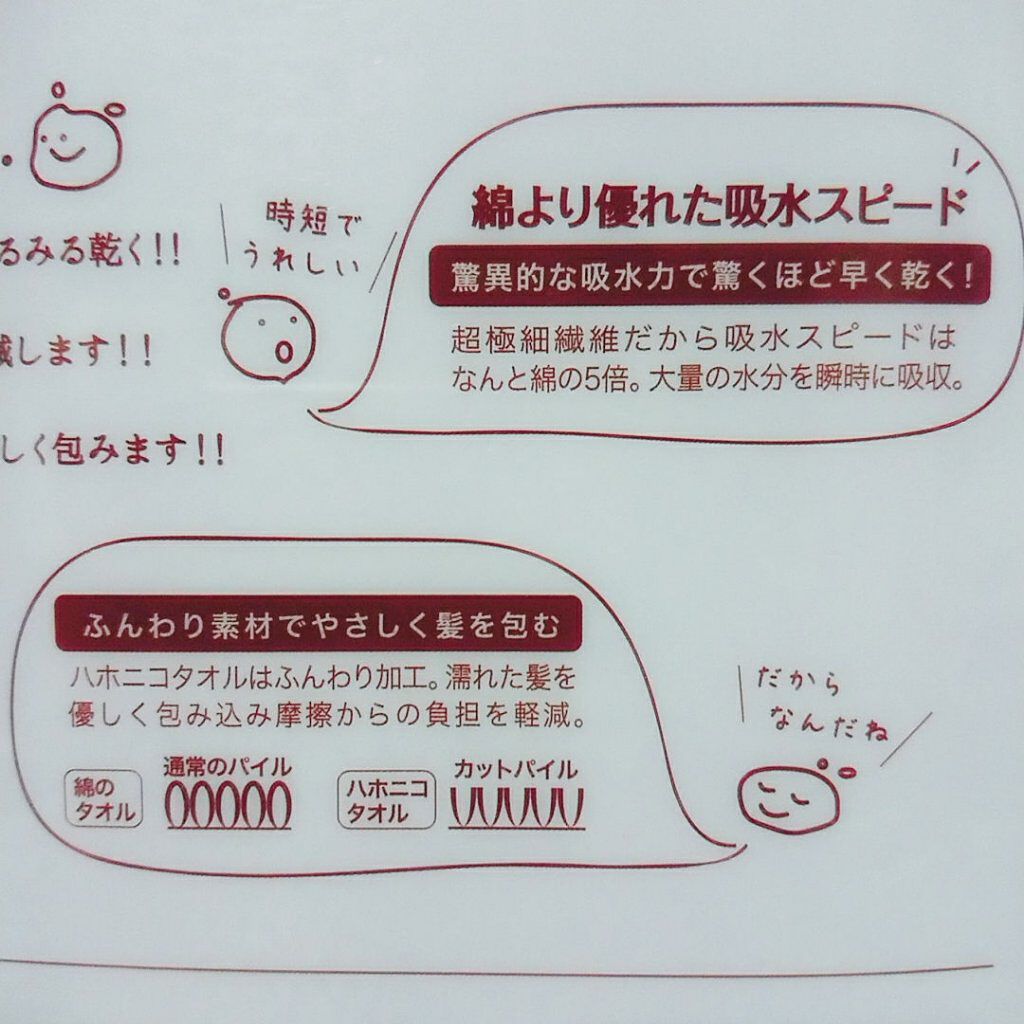 るみる乾く!!
減します!!
しく包みます!!
時短で
うれしい
綿より優れた吸水スピード
驚異的な吸水力で驚くほど早く乾く!
超極細繊維だから吸水スピードは
なんと綿の5倍。大量の水分を瞬時に吸収。
ふんわり素材でやさしく髪を包む
ハホニコタオルはふんわり加工。濡れた髪を
優しく包み込み摩擦からの負担を軽減。
綿の
タオル
通常のパイル
ハホニコ
タオル
カットパイル
だから
なんだね